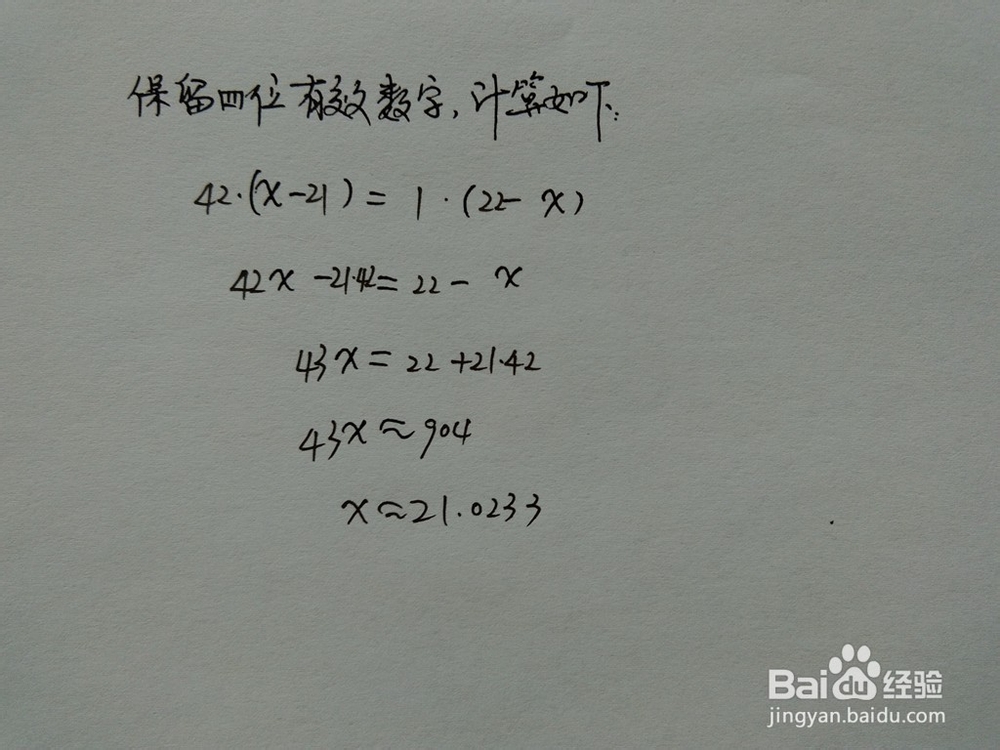 保留四位有效数字,计算如下:
42·(x-21)=1·(22-x)
42x-21·42=22-x
43x=22+21·42
43x≈904
x≈21.0233
Baidu经验
jingyan.baidu.com